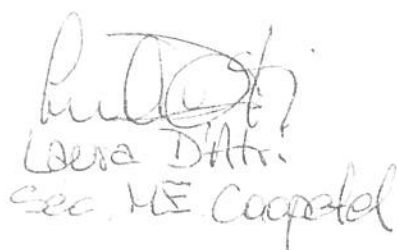 Laura D'Atri
Sec. ME. Coopetel